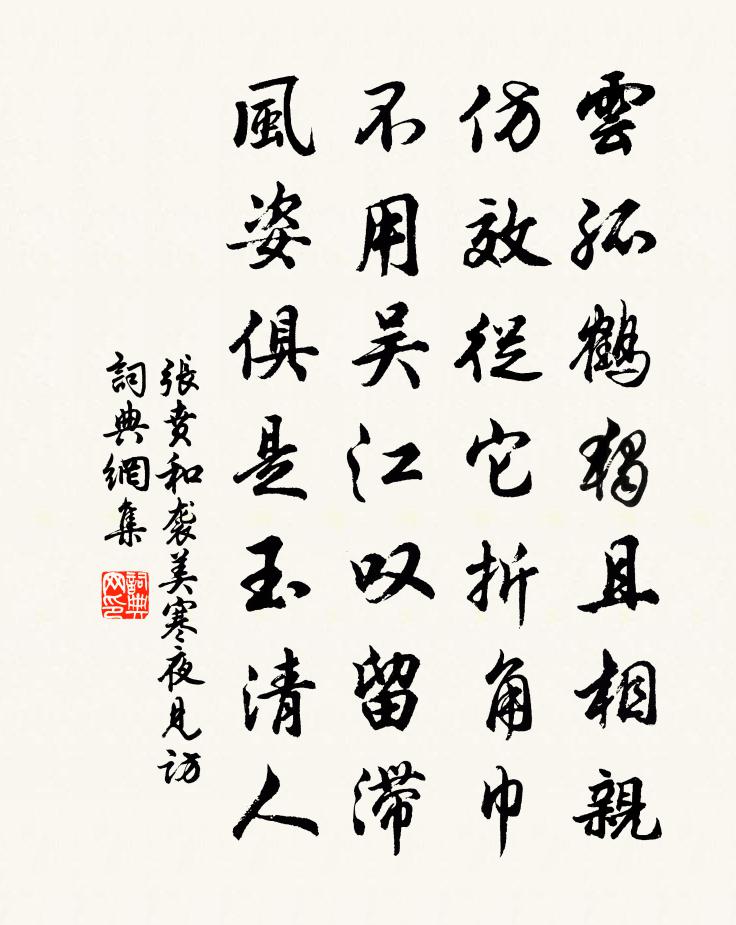 雲孤鶴獨且相親
仿效從它折角巾
不用吴江叹留滯
風姿俱是玉清人
張賁和袭美寒夜見访
詞典網集
詞典網印